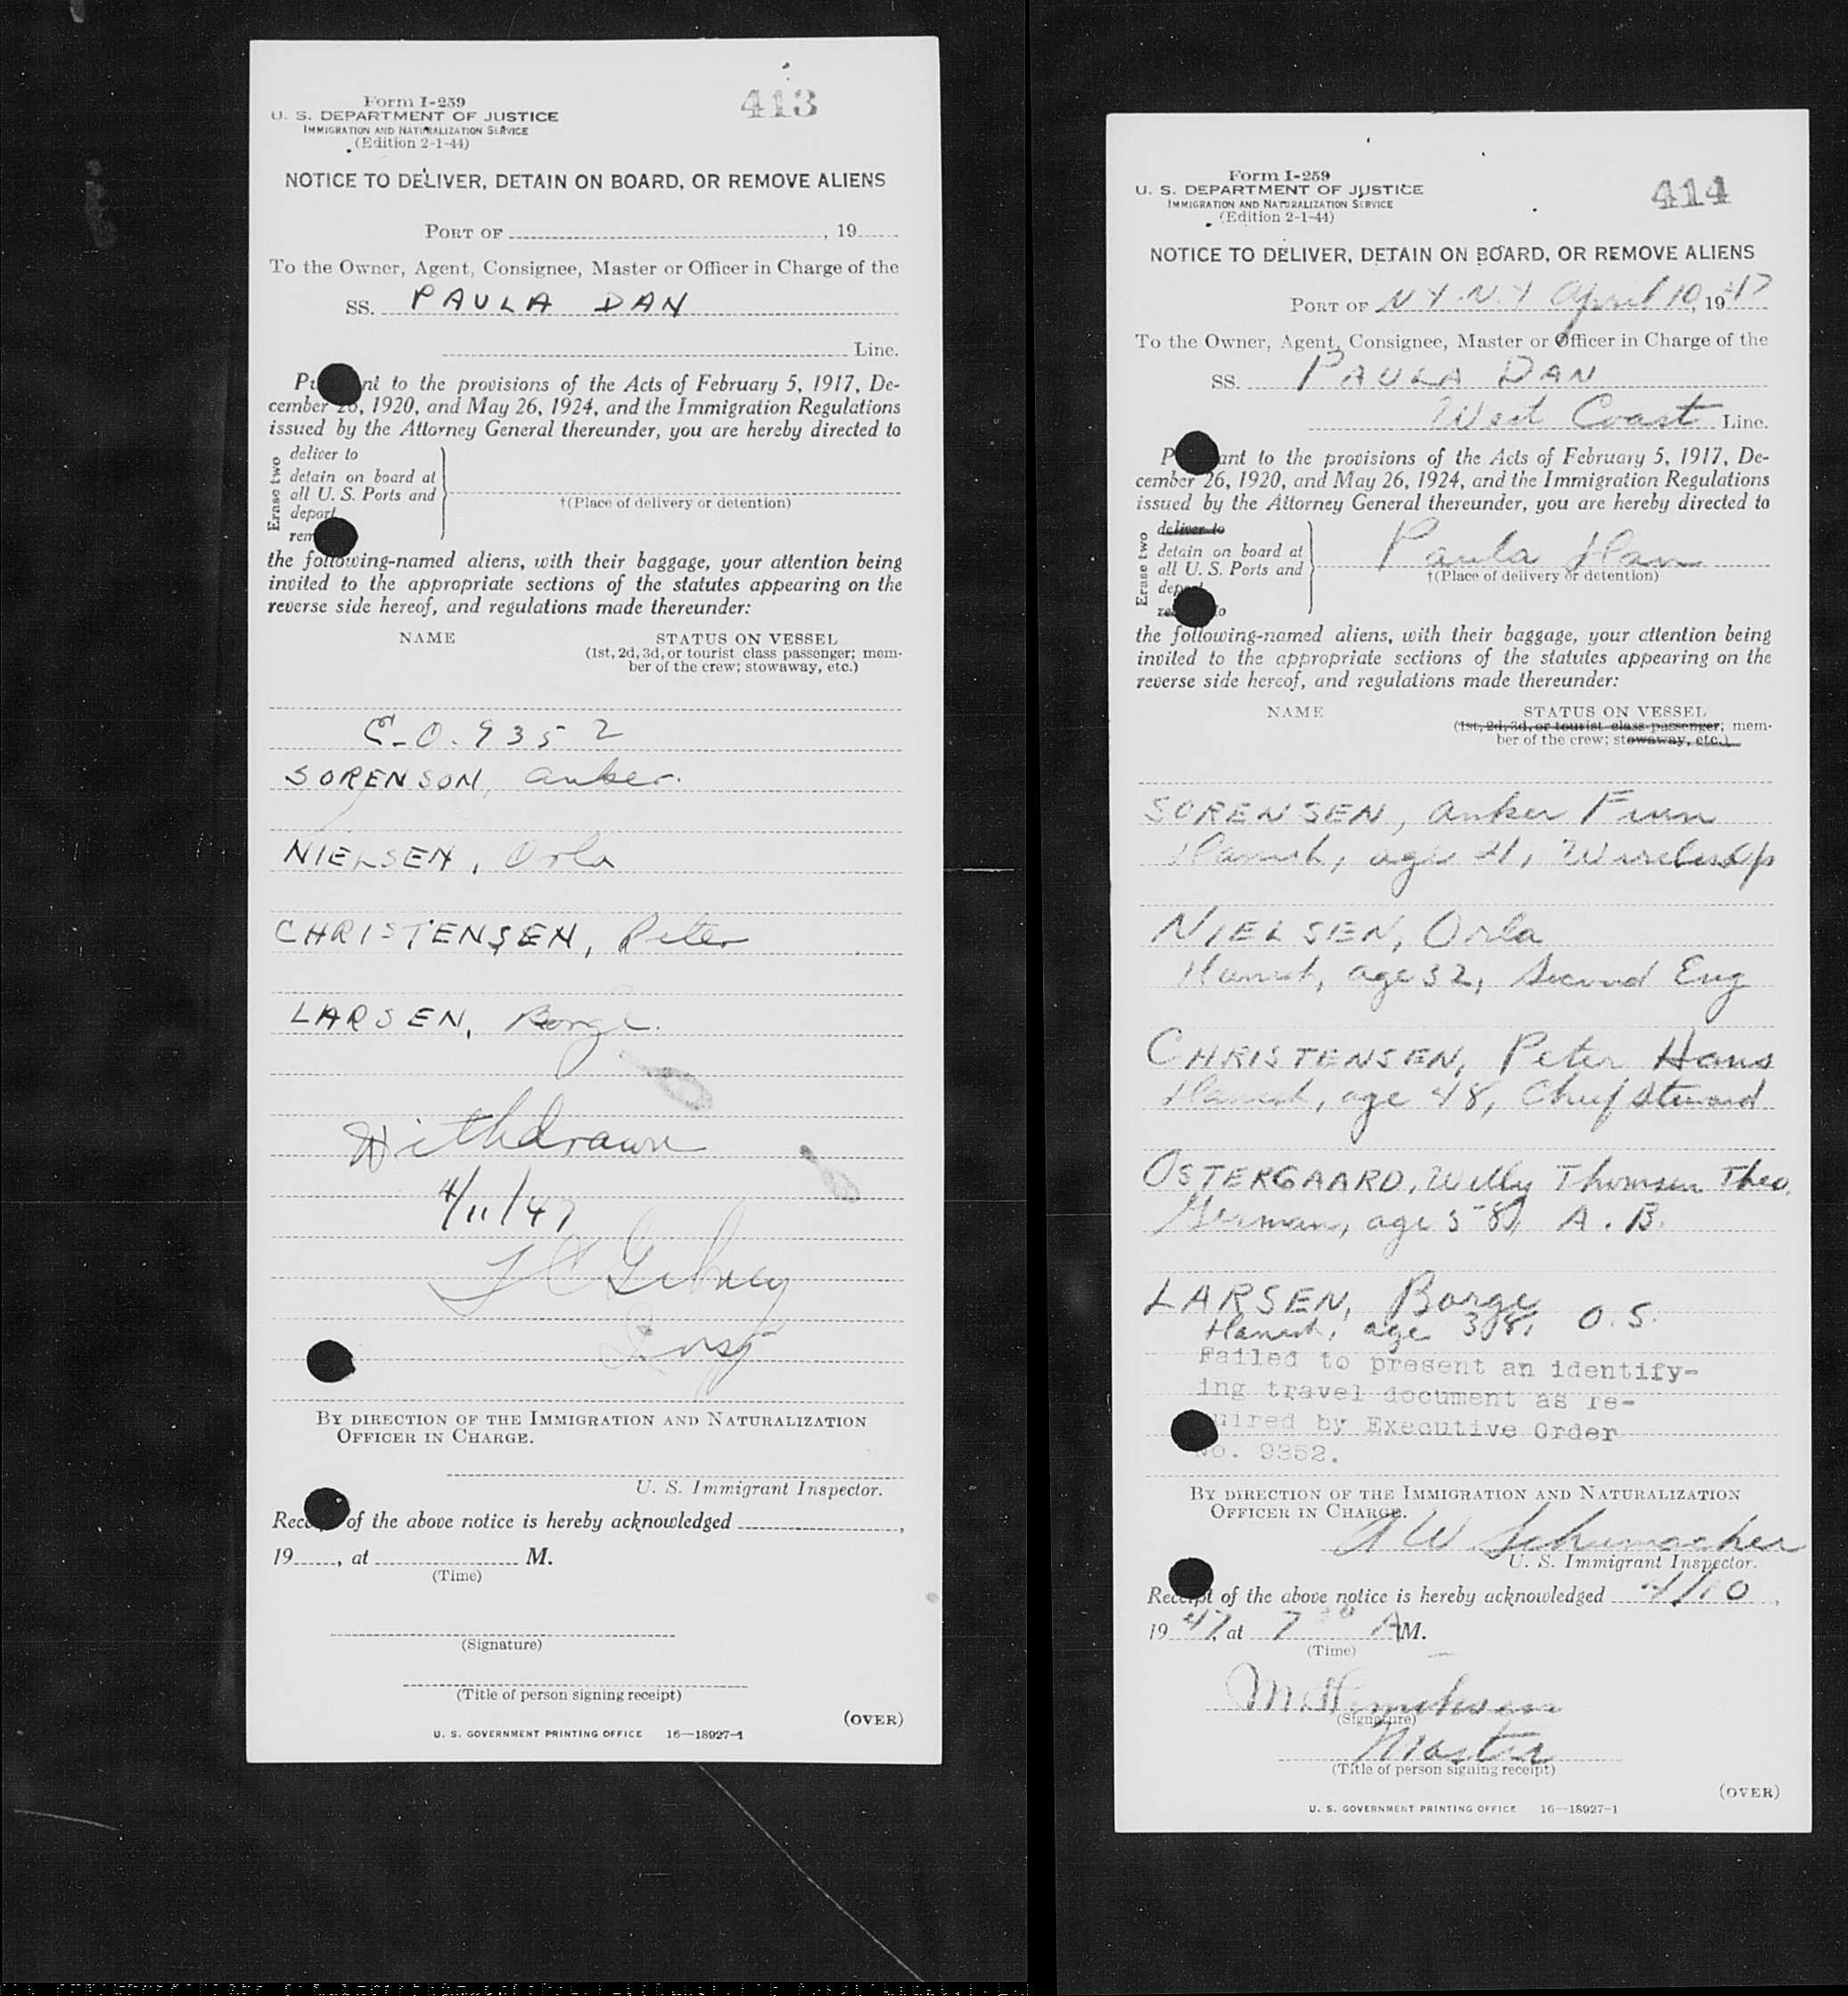 Form I-259
413
U. S. DEPARTMENT OF JUSTICE
IMMIGRATION AND NATURALIZATION SERVICE
(Edition 2-1-44)
NOTICE TO DELIVER, DETAIN ON BOARD, OR REMOVE ALIENS
PORT OF , 19
To the Owner, Agent, Consignee, Master or Officer in Charge of the
SS. PAULA DAN
Line.
nt to the provisions of the Acts of February 5, 1917, De-
cember 26, 1920, and May 26, 1924, and the Immigration Regulations
issued by the Attorney General thereunder, you are hereby directed to
Erase two
deliver to
detain on board at
all U. S. Ports and
deport
rem
†(Place of delivery or detention)
the following-named aliens, with their baggage, your attention being
invited to the appropriate sections of the statutes appearing on the
reverse side hereof, and regulations made thereunder:
NAME STATUS ON VESSEL
(1st, 2d, 3d, or tourist class passenger; mem-
ber of the crew; stowaway, etc.)
E.O. 9352
SORENSON, Anker.
NIELSEN, Orla
CHRISTENSEN, Peter
LARSEN, Borge.
Withdrawn
4/11/47
Insp
BY DIRECTION OF THE IMMIGRATION AND NATURALIZATION
OFFICER IN CHARGE.
U. S. Immigrant Inspector.
Rece of the above notice is hereby acknowledged ,
19 , at M.
(Time)
(Signature)
(Title of person signing receipt)
(OVER)
U. S. GOVERNMENT PRINTING OFFICE 16—18927-1
Form I-259
414
U. S. DEPARTMENT OF JUSTICE
IMMIGRATION AND NATURALIZATION SERVICE
(Edition 2-1-44)
NOTICE TO DELIVER, DETAIN ON BOARD, OR REMOVE ALIENS
PORT OF N.Y. N.Y April 10, 1947
To the Owner, Agent, Consignee, Master or Officer in Charge of the
SS. PAULA DAN
West Coast Line.
P ant to the provisions of the Acts of February 5, 1917, De-
cember 26, 1920, and May 26, 1924, and the Immigration Regulations
issued by the Attorney General thereunder, you are hereby directed to
Erase two
deliver to
detain on board at
all U. S. Ports and
dep
re to
Paula Dan
†(Place of delivery or detention)
the following-named aliens, with their baggage, your attention being
invited to the appropriate sections of the statutes appearing on the
reverse side hereof, and regulations made thereunder:
NAME STATUS ON VESSEL
(1st, 2d, 3d, or tourist class passenger; mem-
ber of the crew; stowaway, etc.)
SORENSEN, Anker Finn
Danish, age 21, Wireless Op
NIELSEN, Orla
Danish, age 32, Second Eng
CHRISTENSEN, Peter Hans
Danish, age 48, Chief Steward
OSTERGAARD, Willy Thomsen Theo.
German, age 58, A. B.
LARSEN, Borge
Danish, age 38, O. S.
Failed to present an identify-
ing travel document as re-
quired by Executive Order
No. 9352.
BY DIRECTION OF THE IMMIGRATION AND NATURALIZATION
OFFICER IN CHARGE.
A W Schumacher
U. S. Immigrant Inspector.
Receipt of the above notice is hereby acknowledged 4/10 ,
1947, at 7 30 A M.
(Time)
(Signature)
Master
(Title of person signing receipt)
(OVER)
U. S. GOVERNMENT PRINTING OFFICE 16—18927-1